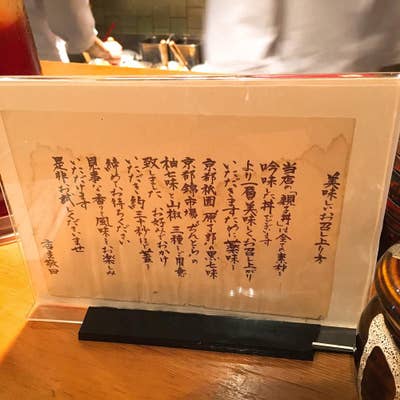 美味しいお召し上り方
当店の「親子丼」は全ての素材を
吟味した丼でございます
より一層美味しくお召し上がり
いただきますため、薬味に
京都祇園 原了郭の黒七味
京都錦市場 ぢんとらの
柚七味・山椒 三種をご用意
致しました お好みでおかけ
いただき 約三十秒ほど蓋を
締めてお待ちください
見事な香り、風味をお楽しみ
いただけます
是非お試しくださいませ